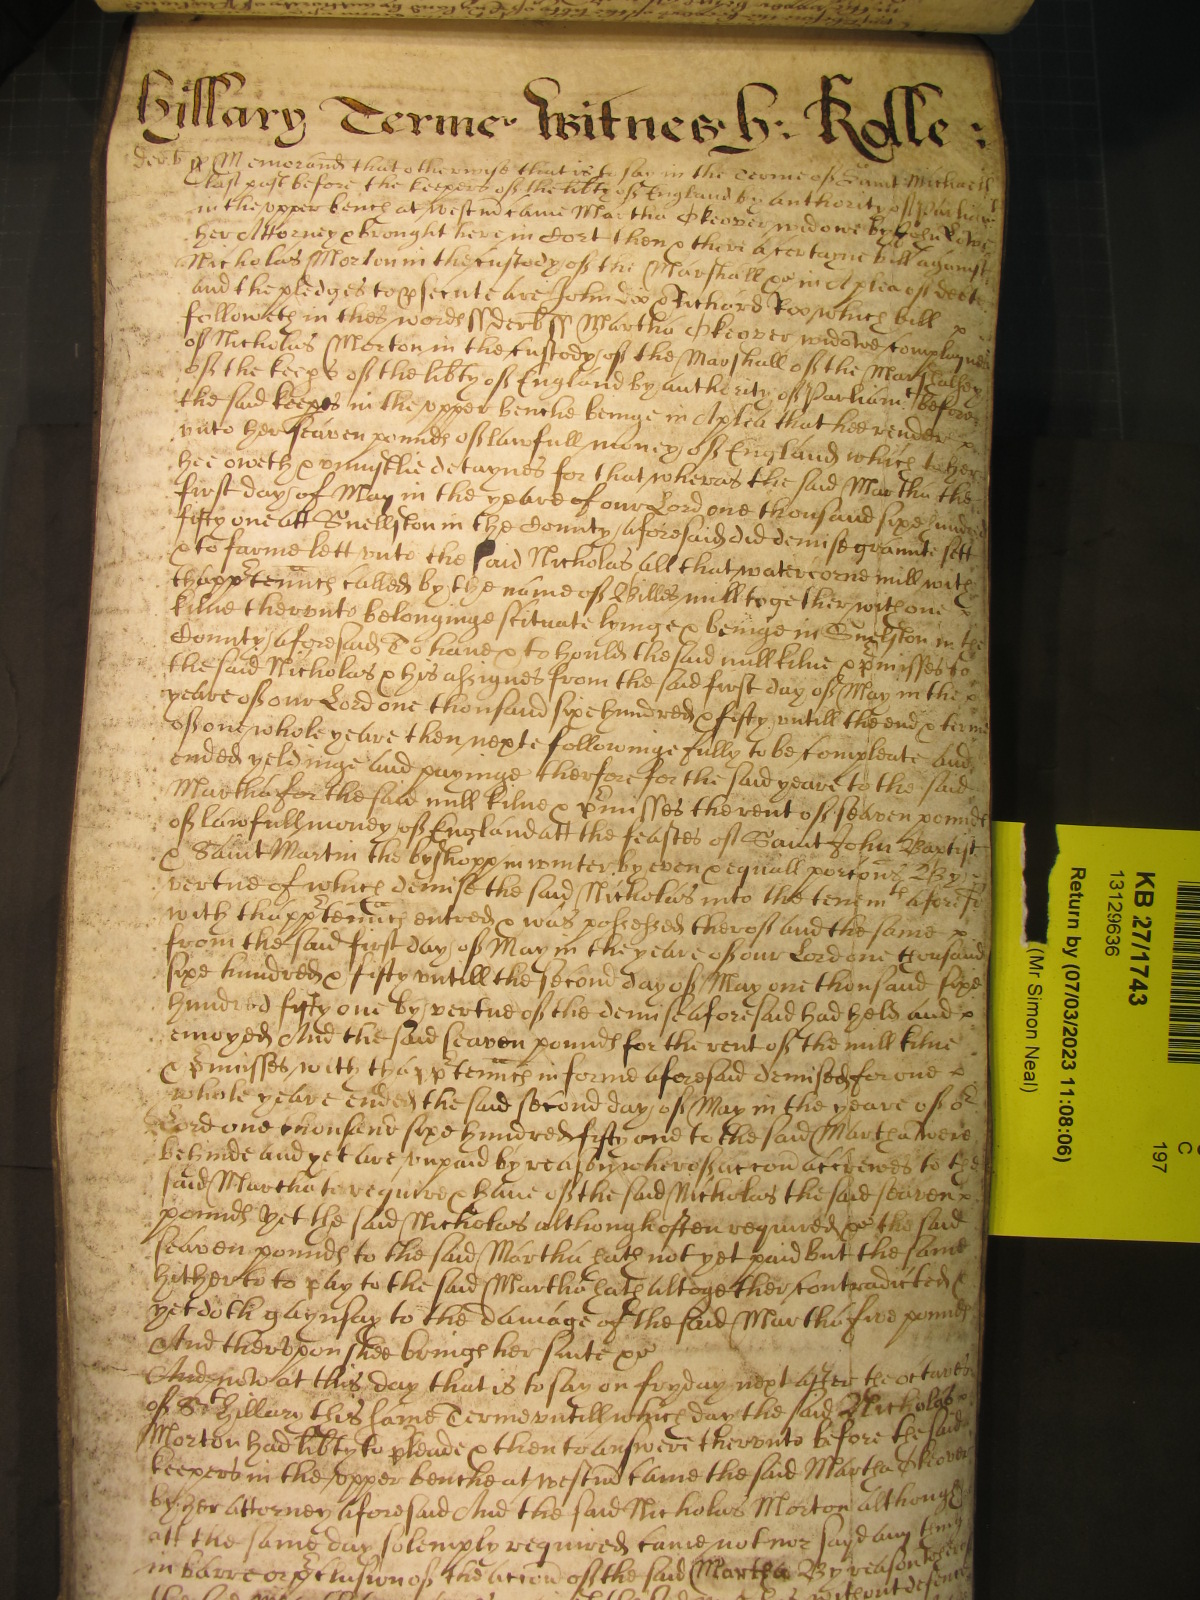 Hillary Terme Witnes H: Rolle :
derb ss Memorand that otherwise that is to say in the Terme of Saint Michaell
last past before the keepers of the libty of England by authority of Parliamt
in the vpper bench at Westm came Martha Okeover widowe by John Lowe
her Attorney & brought here in Cort then & there a certayne bill against
Nicholas Morton in the custody of the Marshall &c in A plea of debte
and the pledges to psecute are John Doo & Richard Roo which bill
followeth in thes words ss derb ss Martha Okeover widowe complaynes
of Nicholas Morton in the Custody of the Marshall of the Marshalsey
of the keeps of the libty of England by authority of Parliamt before
the said keeps in the vpper benche beinge in A plea that hee render
vnto her seaven pounds of lawfull money of England which to her
hee oweth & vniustlie detaynes for that wheras the said Martha the
first day of May in the yeare of our Lord one thousand sixe hundred
fifty one att Snellston in the County aforesaid did demise graunte sett
& to farme lett vnto the said Nicholas all that watercorne mill with
thapptennc called by the name of Gilles mill together with one
kilne thervnto belonginge scituate lyinge & beinge in Snelston in the
County aforesaid To have & to hould the said mill kilne & pmisses to
the said Nicholas & his assignes from the said first day of May in the
yeare of our Lord one thousand sixe hundred & fifty vntill the end & terme
of one whole yeare then nexte followinge fully to be compleate and
ended yeldinge and payinge therfore for the said yeare to the said
Martha for the said mill kilne & pmisses the rent of seaven pounds
of lawfull money of England att the feastes of Saint John Baptist
& Saint Martin the byshopp in winter by even & equall porcons By
vertue of which demise the said Nicholas into the tenemts aforesd
with thapptennc entred & was possessed therof and the same
from the said first day of May in the yeare of our Lord one thousand
sixe hundred & fifty vntill the second day of May one thousand sixe
hundred fifty one by vertue of the demise aforesaid had held and
enioyed And the said seaven pounds for the rent of the mill kilne
& pmisses with thapptennc in forme aforesaid demised for one
whole yeare ended the said second day of May in the yeare of or
Lord one thousand sixe hundred fifty one to the said Martha were
behinde and yet are vnpaid by reason wherof accon accrewes to the
said Martha to require & have of the said Nicholas the said seaven
pounds Yet the said Nicholas although often required &c the said
seaven pounds to the said Martha hath not yet paid but the same
hitherto to pay to the said Martha hath altogether contradicted &
yet doth gaynsay to the damage of the said Martha five pounds
And therevpon shee brings her suite &c
And now at this day that is to say on fryday next after the octaves
of St Hillary this same Terme vntill which day the said Nicholas
Morton had libty to pleade & then to answere thervnto before the said
keepers in the vpper benche at Westm came the said Martha Okeover
by her attorney aforesaid And the said Nicholas Morton although
att the same day solemply required came not nor sayd any thing
in barre or pclusion of the accon of the said Martha By reason wherof
KB 27/1743
13129636
Return by (07/03/2023 11:08:06)
(Mr Simon Neal)
197
C